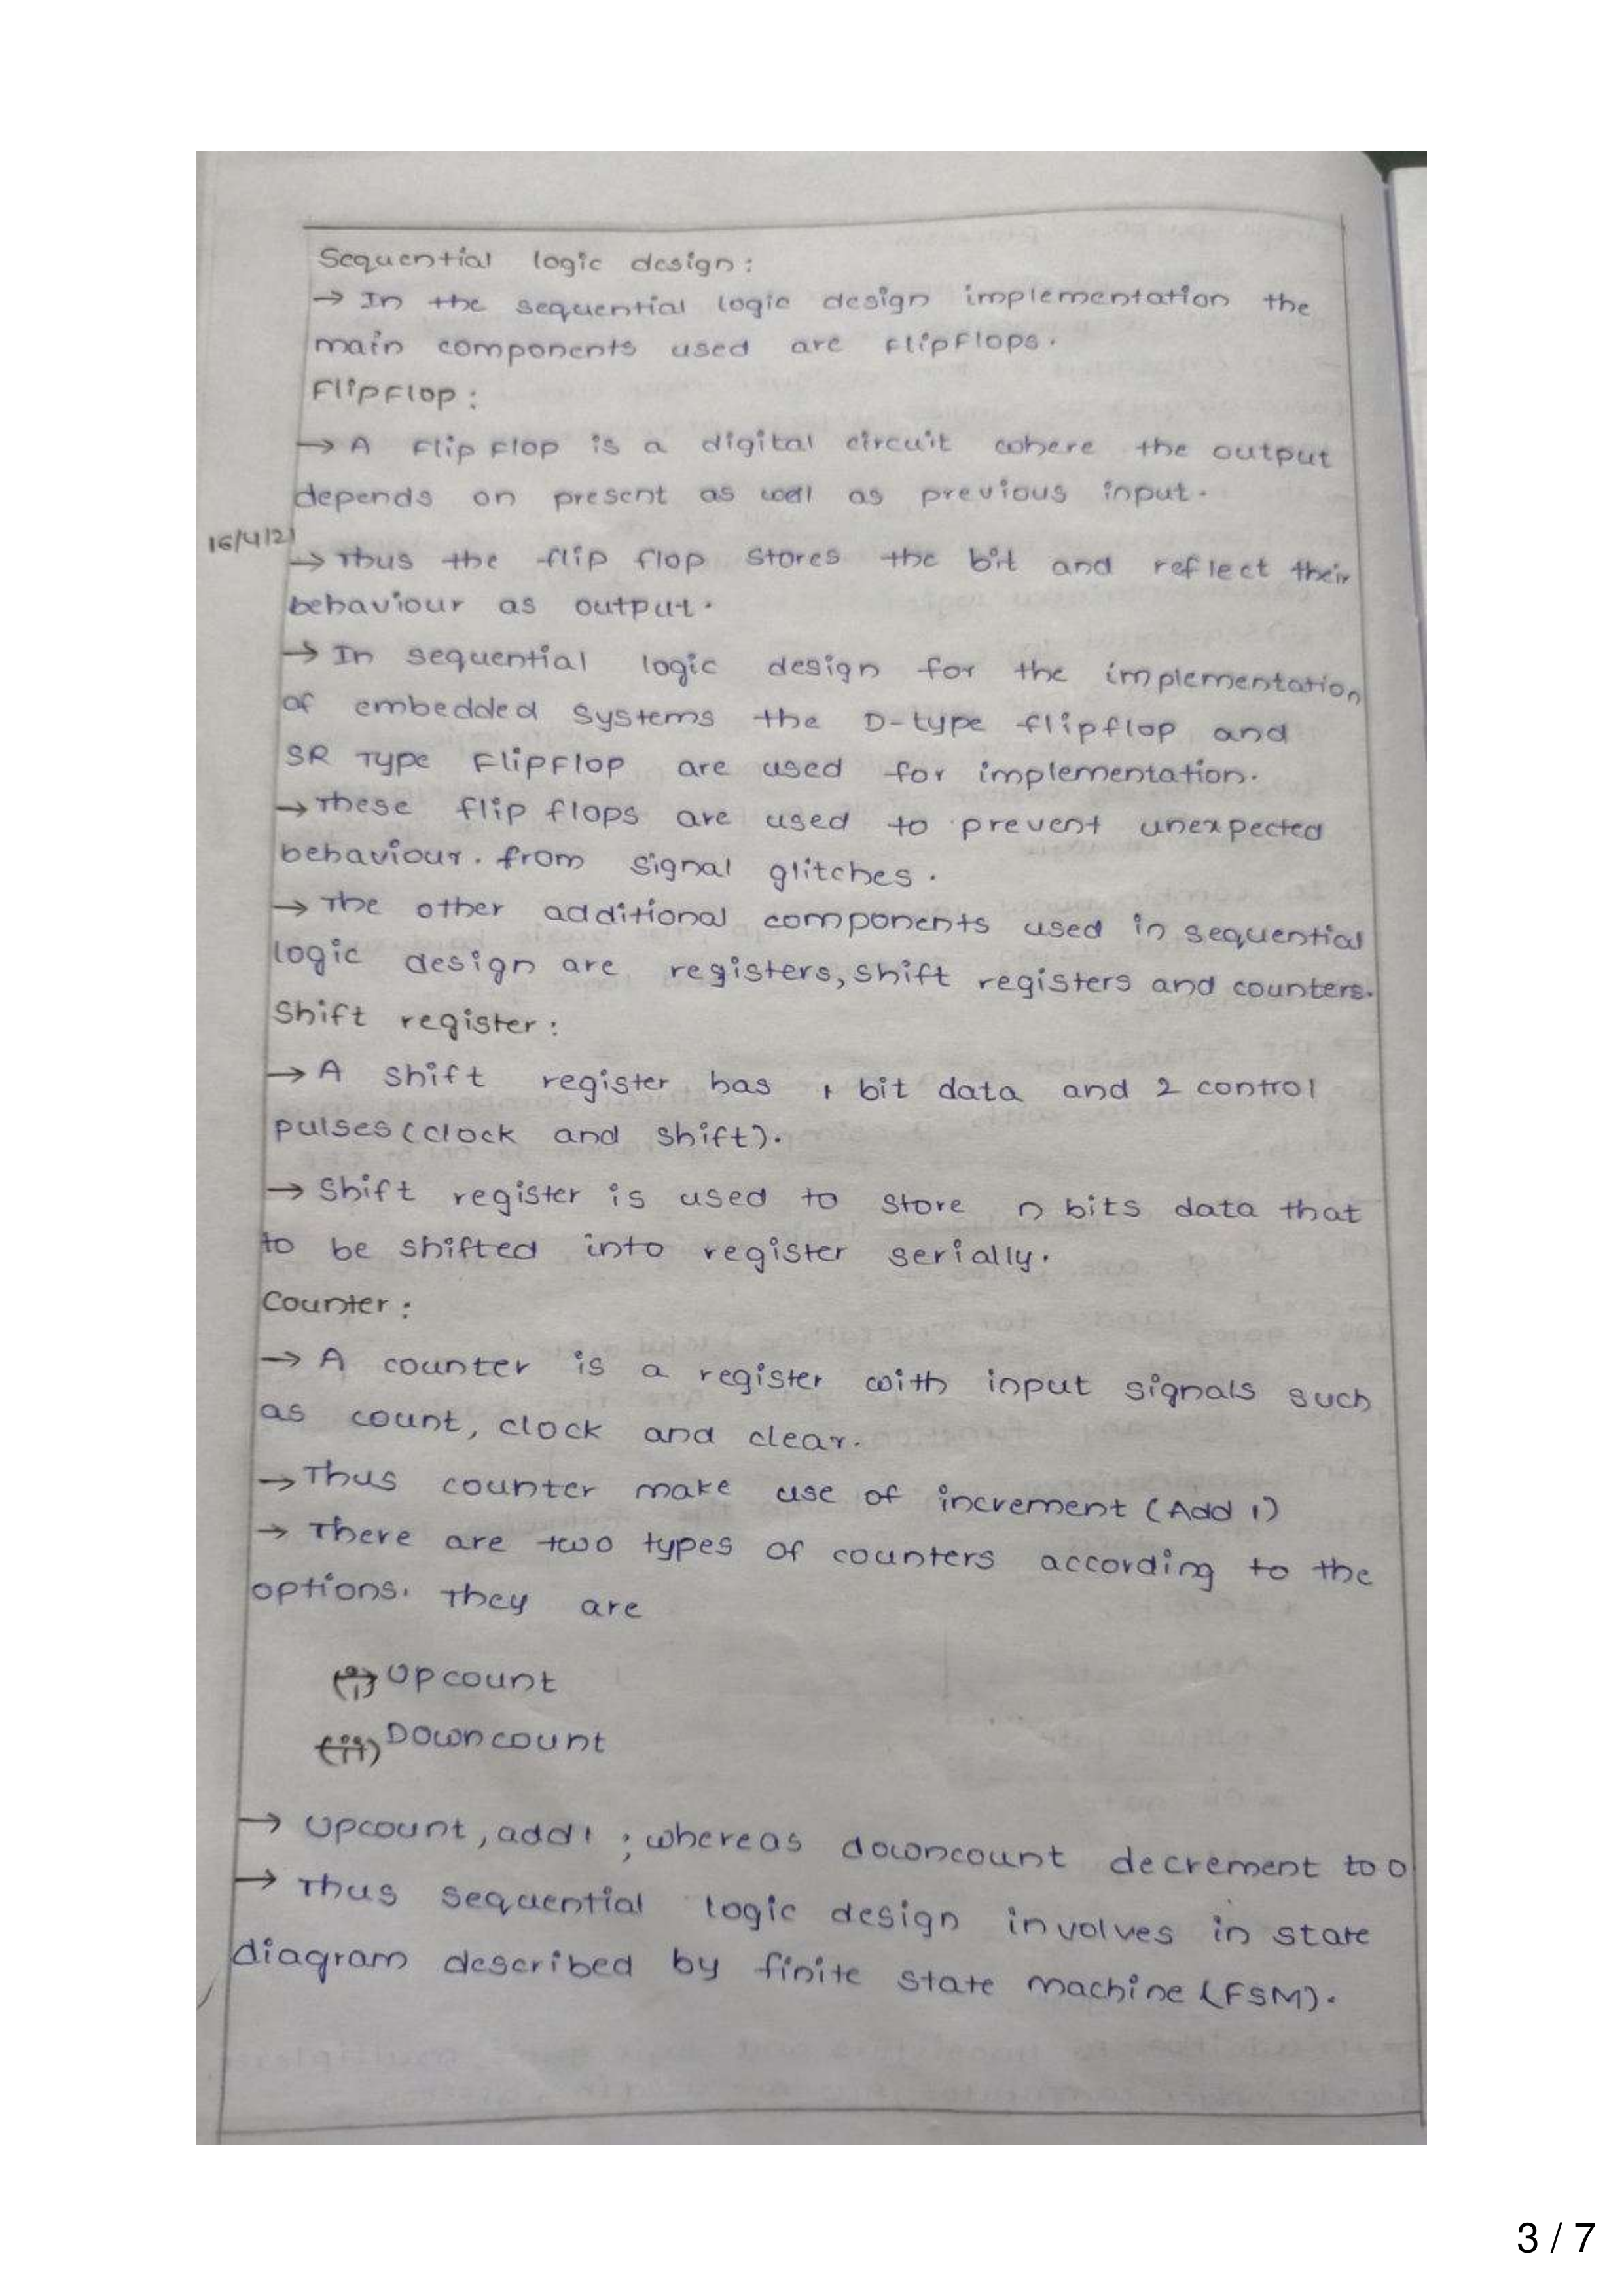 Sequential logic design:
→ In the sequential logic design implementation the
main components used are flipflops.
Flipflop:
→ A flip flop is a digital circuit where the output
depends on present as well as previous input.
16/4/21
→ Thus the flip flop stores the bit and reflect their
behaviour as output.
→ In sequential logic design for the implementation
of embedded systems the D-type flipflop and
SR Type Flipflop are used for implementation.
→ These flip flops are used to prevent unexpected
behaviour. from signal glitches.
→ The other additional components used in sequential
logic design are registers, shift registers and counters.
Shift register:
→ A shift register has 1 bit data and 2 control
pulses (clock and shift).
→ Shift register is used to store n bits data that
to be shifted into register serially.
Counter:
→ A counter is a register with input signals such
as count, clock and clear.
→ Thus counter make use of increment (Add 1)
→ There are two types of counters according to the
options. They are
(i) Upcount
(ii) Downcount
→ Upcount, add 1; whereas downcount decrement to 0
→ Thus sequential logic design involves in state
diagram described by finite state machine (FSM).
3 / 7